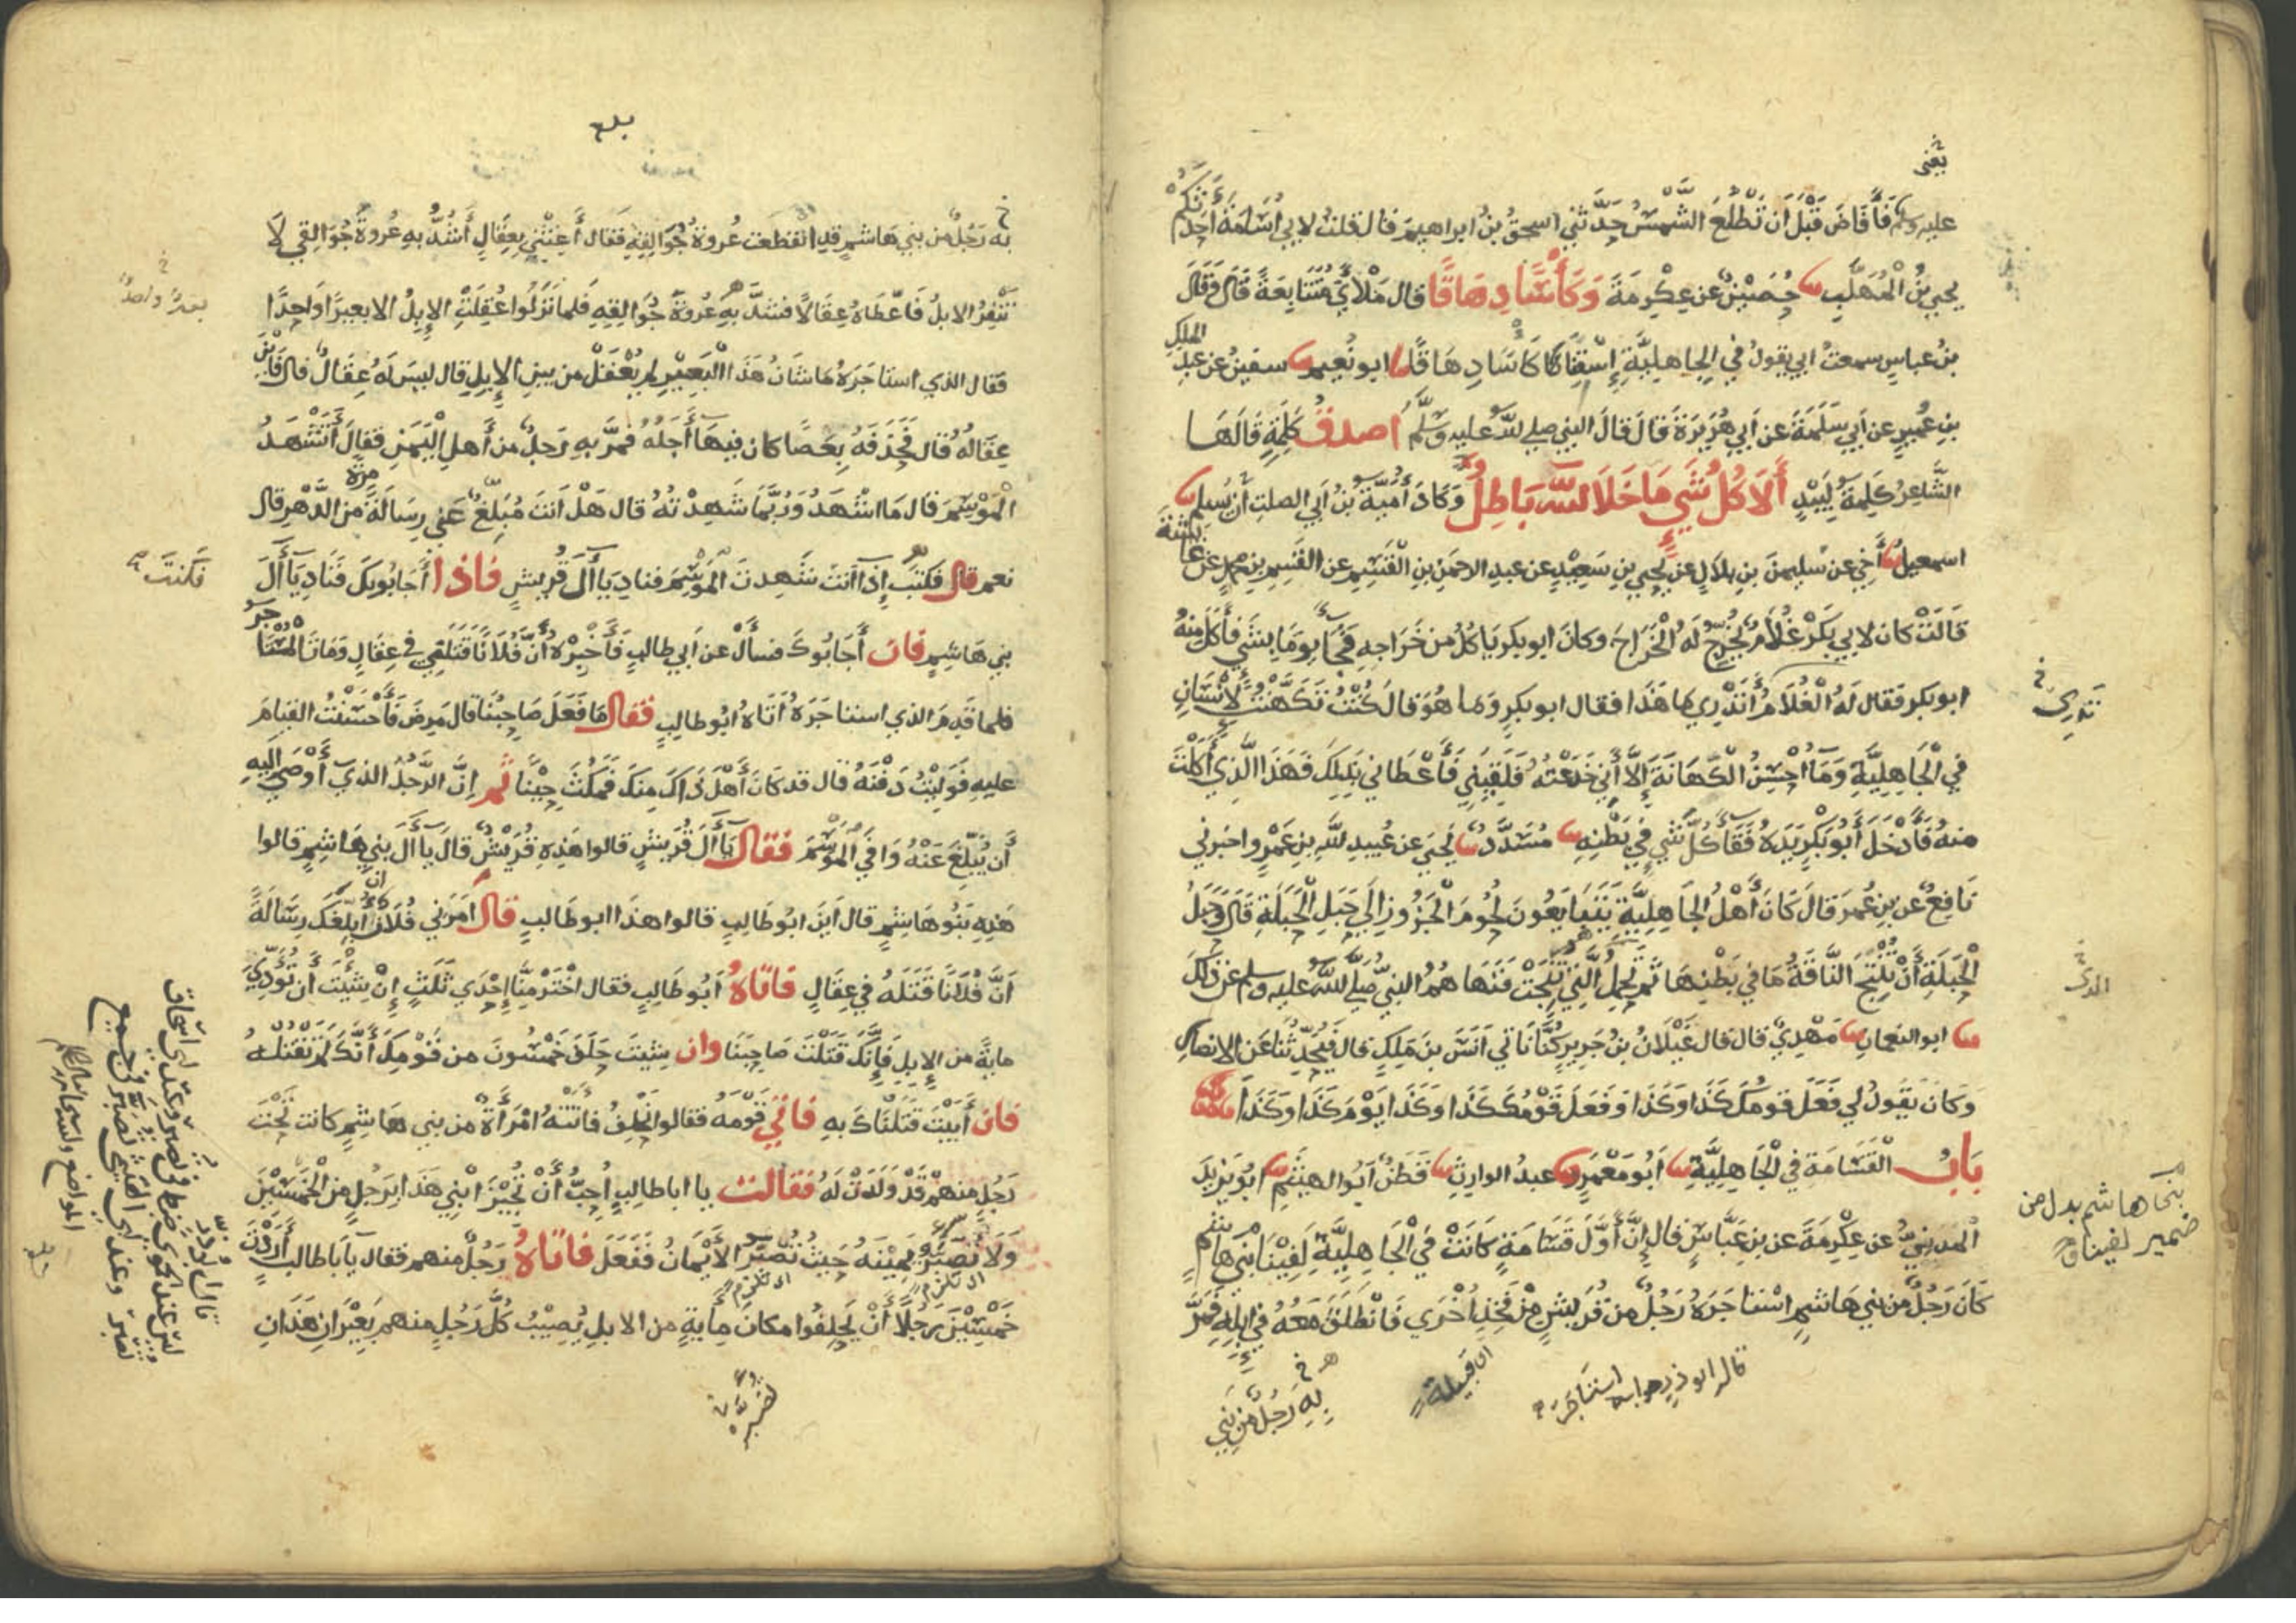 يعني
عليه وسلم فَأَفَاضَ قَبْلَ أَن تَطْلُعَ الشَّمْسُ حَدَّثَنِي اسحقُ بنُ ابراهيمَ قال قلتُ لابي أُسَامَةَ أَحَدَّثَكُمْ
يحيي بنُ الْمُهَلَّبِ حُصَيْنٌ عن عِكْرِمَةَ وَكَأْسًا دِهَاقًا قال مَلْأَي مُتَتَابِعَةً قَالَ وَقَالَ
بنُ عباسٍ سمعتُ ابي يقولُ في الجاهليَّةِ إِسْقِنَا كَأْسًا دِهَاقًا ابو نُعيم سفينُ عن عبدِ الملكِ
بنِ عُميرٍ عن أبي سَلَمَةَ عن أبي هُرَيْرَةَ قالَ قالَ النبي صلي لله عليه وسَلَّمَ أصدقُ كَلِمَةٍ قَالَهَا
الشَّاعِرُ كَلِمَةُ لَبِيْدٍ أَلَا كُلُّ شَيٍ مَا خَلَا للهَ بَاطِلُ وَكَادَ أُمَيَّةُ بنُ أبي الصلتِ أن يُسلِمَ
اسمعيلُ أَخِي عن سُليمنَ بنِ بلَالٍ عن يحيي بنِ سَعِيْدٍ عن عبدِ الرحمنِ بنِ الْقَسِمِ عن القَسِمِ بنِ محمدٍ عن عائشةَ
قَالَتْ كان لابي بَكْرٍ غُلَامٌ يُخْرِجُ لَهُ الْخَرَاجَ وكانَ ابوبكرٍ يَاكُلُ من خَرَاجِهِ فَجَاءَ يومًا بِشَيٍ فأكَلَ مِنْهُ
ابوبكرٍ فقال لَهُ الْغُلَامُ أَتَدْرِي ما هَذَا فقال ابوبكرٍ وَمَا هُوَ قالَ كُنْتُ تَكَهَّنْتُ لِإِنْسَانٍ
تَدرِي خ
في الْجَاهِلِيَّةِ وَمَا أُحْسِنُ الْكَهَانَةَ إِلَّا أَنِّي خَدَعْتُهُ فَلَقِيَنِي فَأَعْطَانِي بِذَلِكَ فَهَذَا الَّذِي أَكَلْتَ
منهُ فَأَدْخَلَ أَبُو بَكْرٍ يَدَهُ فَقَاءَ كُلَّ شَيٍ فِي بَطْنِهِ مُسَدَّدٌ يَحيَي عن عُبيدِ للهِ بنِ عَمْرٍ واخبَرني
نَافِعٌ عن بنِ عُمَرَ قالَ كَانَ أَهْلُ الجَاهِلِيَّةِ يَتَبَايَعُونَ لُحُومَ الْجَزُورِ إِلَي حَبَلِ الْحَبَلَةِ قَالَ وَحَبَلُ
الْحَبَلَةِ أَنْ تُنْتَجَ النَّاقَةُ مَا فِي بَطْنِهَا ثم تَحمِلُ الَّتِي نُتِجَتْ فَنَهَاهُمُ النبيُّ صَلَّي للهُ عليه وسلم عن ذَلِكَ
ابو النعمانِ مَهْدِيٌ قال قال غَيْلَانُ بنُ جَرِيرٍ كُنَّا نَاتِي أَنَسَ بنَ مَلِكٍ قال فَيُحَدِّثُنَا عَنِ الانصارِ
وَكَانَ يَقُولُ لي فَعَلَ قَومُكَ كَذَا وَكَذَا يَوْمَ كَذَا وَكَذَا وَفَعَلَ قَوْمُكَ كَذَا وَكَذَا يَوْمَ كَذَا وَكَذَا
بَابُ الْقَسَامَةِ في الْجَاهِلِيَّةِ أبُو مَعْمَرٍ عبدُ الوارِثِ قَطَنٌ أَبُو الهيثَمِ ابُو يَزِيدَ
الْمَدِيْنِيُّ عن عِكْرِمَةَ عن بنِ عَبَّاسٍ قال إِنَّ أَوَّلَ قَسَامَةٍ كَانَتْ في الْجَاهِلِيَّةِ لَفِيْنَا بَنِي هَاشِمٍ
بني هاشم بدل من
ضمير لفينا
كَانَ رَجُلٌ من بني هَاشمٍ اسْتَاجَرَهُ رَجُلٌ من قُرَيشٍ مِنْ فَخِذٍ أُخْرَي فَانْطَلَقَ مَعَهُ في إِبِلِهِ فَمَرَّ
قال ابو ذرٍ صوابه استَاجَرَ
اي قَبيلة
بِهِ رَجُلٌ مِن بَنِي
بلغ
به رَجُلٌ من بني هَاشمٍ قدِ انقطَعت عُروَةُ جُوَالِقِهِ فَقال أَغِثْنِي بِعِقَالٍ أَشُدُّ بهِ عُروةَ جُوَالِقِي لَا
تَنْفِرُ الابلُ فَأَعْطَاهُ عِقَالًا فشَدَّ بهِ عُروَةَ جُوَالِقِهِ فلما نَزَلُوا عُقِلَتِ الإِبِلُ الا بعيرًا وَاحِدًا
بعيرٌ واحدٌ خ
فقال الذي استاجَرَهُ مَا شَانُ هَذَا الْبَعِيْرِ لم يُعْقَلْ من بينِ الإِبِلِ قال ليسَ لَهُ عِقَالٌ قال فَاَيْنَ
عِقَالُهُ قال فَحَذَفَهُ بِعَصًا كان فيها أَجَلُهُ فمرَّ بهِ رَجلٌ من أَهلِ الْيَمَنِ فقالَ أَتَشْهَدُ
الْمَوْسِمَ قَال مَا اشْهَدُ وَرُبَّمَا شَهِدْتُهُ قال هَلْ أَنتَ مُبَلِّغٌ عَنِّي رِسَالَةً مَرَّةً من الدَّهْرِ قال
نعم قال فَكَتَبَ إِذَا أَنتَ شَهِدتَ الْمَوْسِمَ فنادِ يَا آلَ قُرَيشٍ فَاذَا أَجَابُوكَ فَنَادِ يَا آلَ
فَكنتَ
بني هَاشِمٍ فَان أَجَابُوكَ فسأَلْ عن أبي طالبٍ فَأَخْبِرْهُ أَنَّ فُلَانًا قَتَلَنِي في عِقَالٍ وَمَاتَ الْمُسْتَاجَرُ
فلما قَدِمَ الذي استاجَرَهُ أَتَاهُ ابُو طالبٍ فقال مَا فَعَلَ صَاحِبُنَا قال مَرِضَ فَأَحْسَنْتُ القيامَ
عليهِ فَوَلِيْتُ دَفْنَهُ قال قد كَانَ أَهْلَ ذَاكَ مِنكَ فَمَكُثَ حِيْنًا ثم إِنَّ الرَّجُلَ الذي أَوْصَي إِلَيهِ
أَن يُبَلِّغَ عَنْهُ وَافَي الْمَوْسِمَ فَقال يَا آلَ قُرَيشٍ قالوا هَذِهِ قُرَيْشٌ قالَ يَا آلَ بني هَاشمٍ قالوا
هَذِهِ بَنُو هَاشمٍ قال أينَ ابُو طَالِبٍ قالوا هذا ابو طَالبٍ قال أَمَرَنِي فُلَانٌ ان أُبَلِّغَكَ رِسَالَةً
أنَّ فُلَانًا قَتَلَهُ في عِقَالٍ فَاتَاهُ أَبُو طَالِبٍ فقال اخْتَرْ مِنَّا إِحْدَي ثَلَثٍ إِنْ شِئْتَ أَن تُؤَدِّيَ
مايةً من الإِبلِ فَإِنَّكَ قَتَلْتَ صَاحِبَنَا وان شِئتَ حَلَفَ خَمْسُونَ من قَوْمِكَ أَنَّكَ لَمْ تَقْتُلْهُ
فان أَبَيْتَ قَتَلْنَاكَ بهِ فَاتَي قَوْمَهُ فقالوا نَحْلِفُ فأتَتْهُ امْرَأَةٌ من بني هاشمٍ كانت تَحْتَ
رَجلٍ مِنهم قَدْ وَلَدَتْ لَهُ فقالت يا ابا طالِبٍ أُحِبُّ أَنْ تُجِيْزَ ابْنِي هَذَا بِرَجُلٍ من الْخَمْسِيْنَ
وَلَا تَصْبُرْ يَمِيْنَهُ حَيثُ تُصْبَرُ الأَيْمَانُ فَفَعَلَ فَاتَاهُ رَجُلٌ منهم فقال يَا أبا طالبٍ أَرَدْتَ
خَمْسِيْنَ رَجُلًا أَنْ يَحلِفُوا مكانَ مِايَةٍ من الابلِ يُصِيْبُ كُلَّ رَجُلٍ منهم بَعِيْرَانِ هَذَانِ